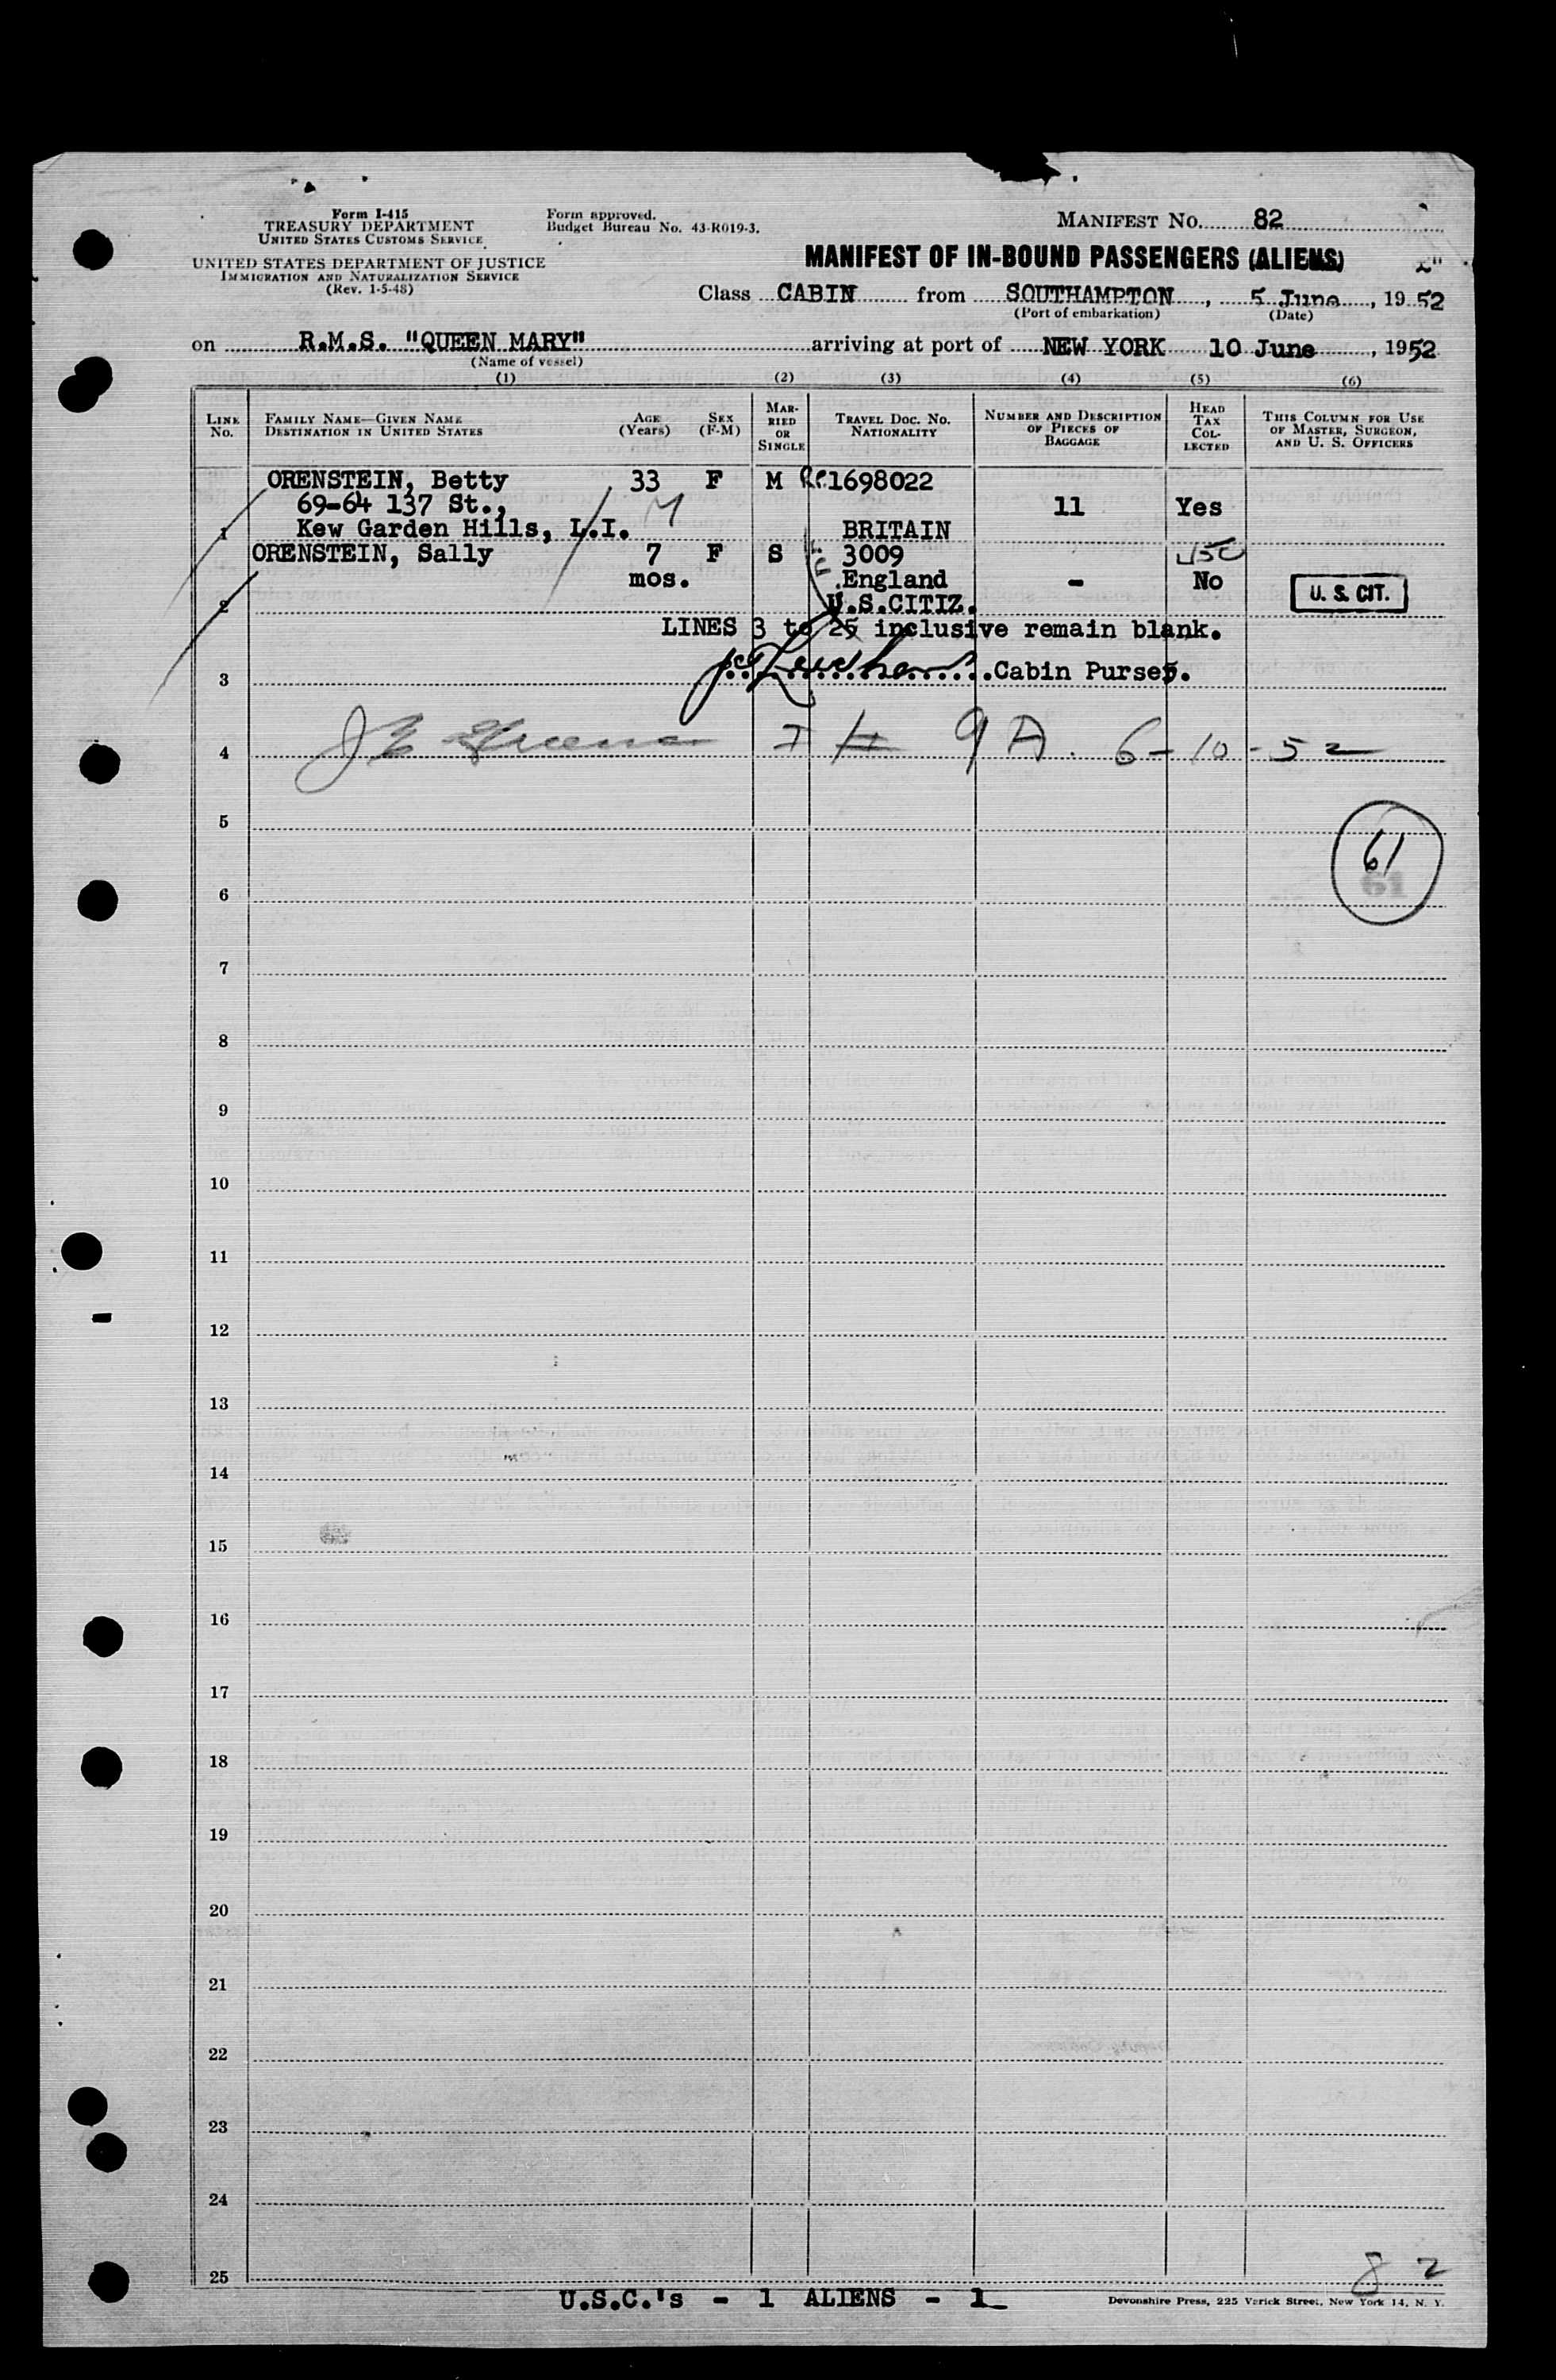 Form I-415
TREASURY DEPARTMENT
UNITED STATES CUSTOMS SERVICE
UNITED STATES DEPARTMENT OF JUSTICE
IMMIGRATION AND NATURALIZATION SERVICE
(Rev. 1-5-48)
Form approved.
Budget Bureau No. 43-R019-3.
MANIFEST NO. 82
MANIFEST OF IN-BOUND PASSENGERS (ALIENS)
Class CABIN from SOUTHAMPTON, 5 June, 1952
(Port of embarkation) (Date)
on R.M.S. "QUEEN MARY" arriving at port of NEW YORK 10 June, 1952
(Name of vessel)
(1) (2) (3) (4) (5) (6)
LINE NO.
FAMILY NAME—GIVEN NAME
DESTINATION IN UNITED STATES
AGE (Years)
SEX (F-M)
MARRIED OR SINGLE
TRAVEL DOC. NO.
NATIONALITY
NUMBER AND DESCRIPTION OF PIECES OF BAGGAGE
HEAD TAX COLLECTED
THIS COLUMN FOR USE OF MASTER, SURGEON, AND U. S. OFFICERS
ORENSTEIN, Betty 33 F M 1698022
69-64 137 St., M 11 Yes
1 Kew Garden Hills, L.I. BRITAIN
ORENSTEIN, Sally 7 F S 3009 USC
mos. England - No U. S. CIT.
2 U.S.CITIZ.
LINES 3 to 25 inclusive remain blank.
3 Cabin Purser.
4 9 A. 6-10-52
5
61
61
6
7
8
9
10
11
12
13
14
15
16
17
18
19
20
21
22
23
24
25
82
U.S.C.'s - 1 ALIENS - 1
Devonshire Press, 225 Varick Street, New York 14, N. Y.